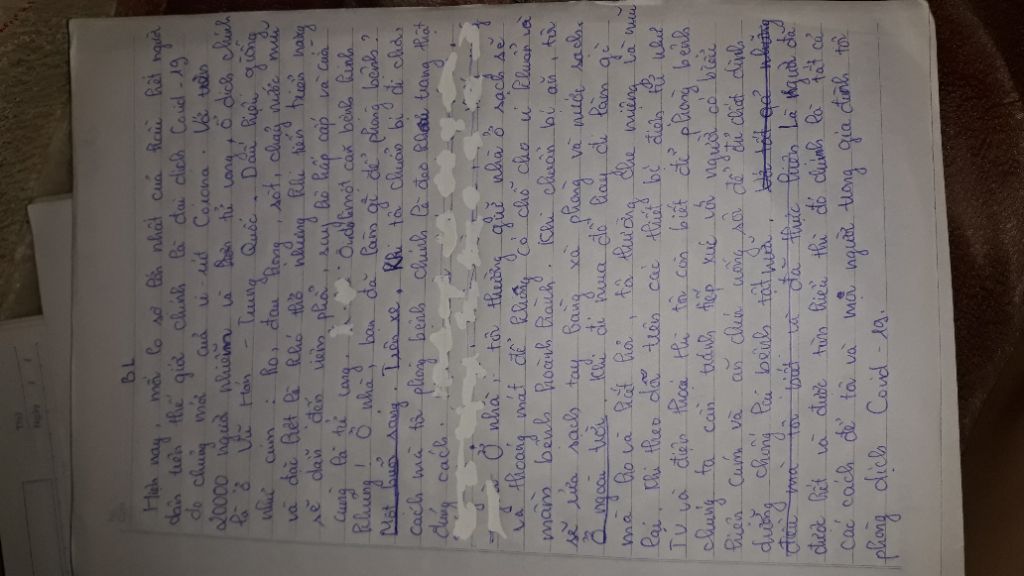 BL
Hiện nay, mối lo sợ lớn nhất của hầu hết người
dân trên thế giới chính là đại dịch Covid-19
do chủng mới của vi-rút Corona. Với
20000 người nhiễm và hơn tử vong, ổ dịch chính
là ở Vũ Hán - Trung Quốc. Dấu hiệu giống
như cúm: ho, đau họng, sốt, chảy nước mũi
và đặc biệt là khó thở nhưng khi tiến triển nặng
sẽ dẫn đến viêm phổi, suy hô hấp và cuối
cùng là tử vong. Ôi! Một căn bệnh kinh
khủng! Ở nhà, bạn đã làm gì để phòng bệnh?
Một buổi sáng. Trên xe, Khi tôi chuẩn bị đi chơi
cách mà tôi phòng bệnh chính là đeo khẩu trang thật
đúng cách.
- Ở nhà, tôi thường giữ nhà ở sạch sẽ
và thoáng mát để không có chỗ cho vi khuẩn và
mầm bệnh hoành hành. Khi chuẩn bị ăn, tôi
sẽ rửa sạch tay bằng xà phòng và nước sạch.
Ở ngoài trời. Khi đi mua đồ hay đi làm gì
mà ho và hắt hơi, tôi thường che miệng và mũi
lại. Khi theo dõi trên các thiết bị điện tử như
TV và điện thoại thì tôi còn biết để phòng bệnh
chúng ta cần tránh tiếp xúc với người có biểu
hiện cúm và ăn chín uống sôi để đủ chất dinh
dưỡng chống lại bệnh tật nữa.
điều mà tôi biết và đã thực hiện là người đã
được biết và được tìm hiểu thì đó chính là tất cả
các cách để tôi và mọi người trong gia đình tôi
phòng dịch Covid-19.